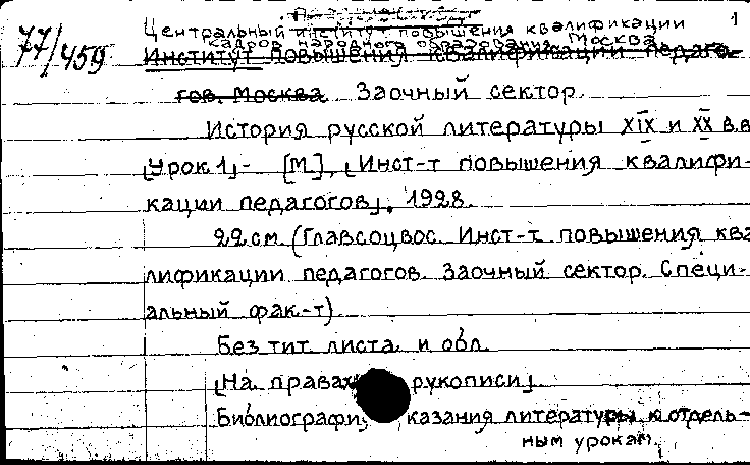 1
Центральный институт повышения квалификации
кадров народного образования Москва
77/459
Институт повышения квалификации педаго-
гов. Москва. Заочный сектор.
История русской литературы XIX и XX в.в
[Урок 1] - [М], [Инст-т повышения квалифи-
кации педагогов], 1928.
22 см. (Главсоцвос. Инст-т повышения ква
лификации педагогов. Заочный сектор. Специ-
альный фак-т)
Без тит. листа и обл.
[На правах рукописи]
Библиографи казания литературы к отдель-
ным урокам.